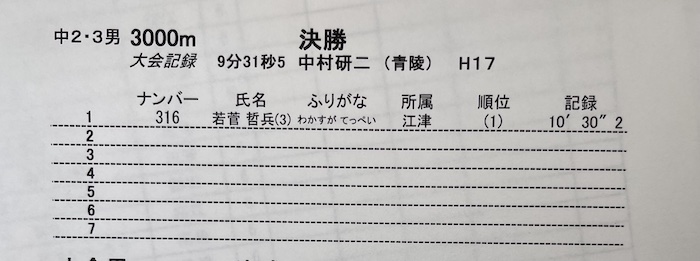 中2・3男 3000m 決勝
大会記録 9分31秒5 中村研二 （青陵） H17
ナンバー 氏名 ふりがな 所属 順位 記録
1 316 若菅 哲兵(3) わかすが てっぺい 江津 (1) 10′ 30″ 2
2
3
4
5
6
7